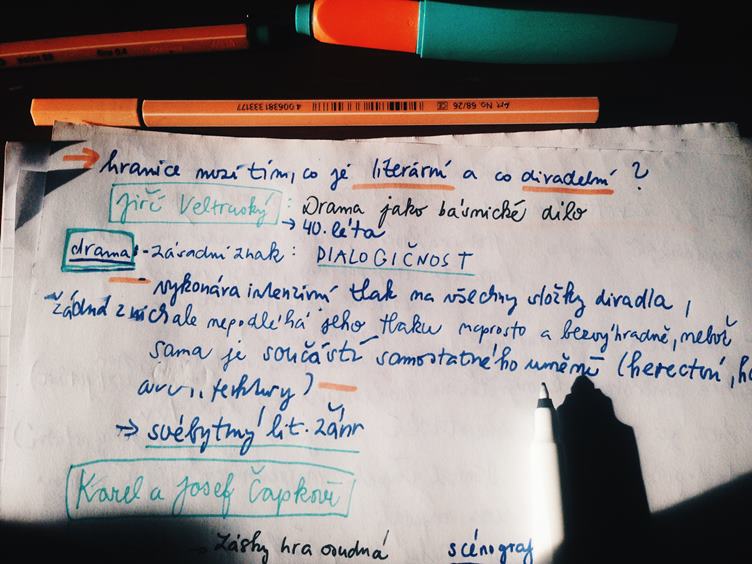 point 88 fine 0,4
Art. No. 68/26 4 006381 333177
→ hranice mezi tím, co je literární a co divadelní ?
Jiří Veltruský : Drama jako básnické dílo
→ 40. léta
drama - zásadní znak : DIALOGIČNOST
- vykonává intenzivní tlak na všechny složky divadla,
žádná z nich ale nepodléhá jeho tlaku naprosto a bezvýhradně, neboť
sama je součástí samostatného umění (herectví, hu
arch., textury)
→ svébytný lit. žánr
Karel a Josef Čapkové
Lásky hra osudná scénograf